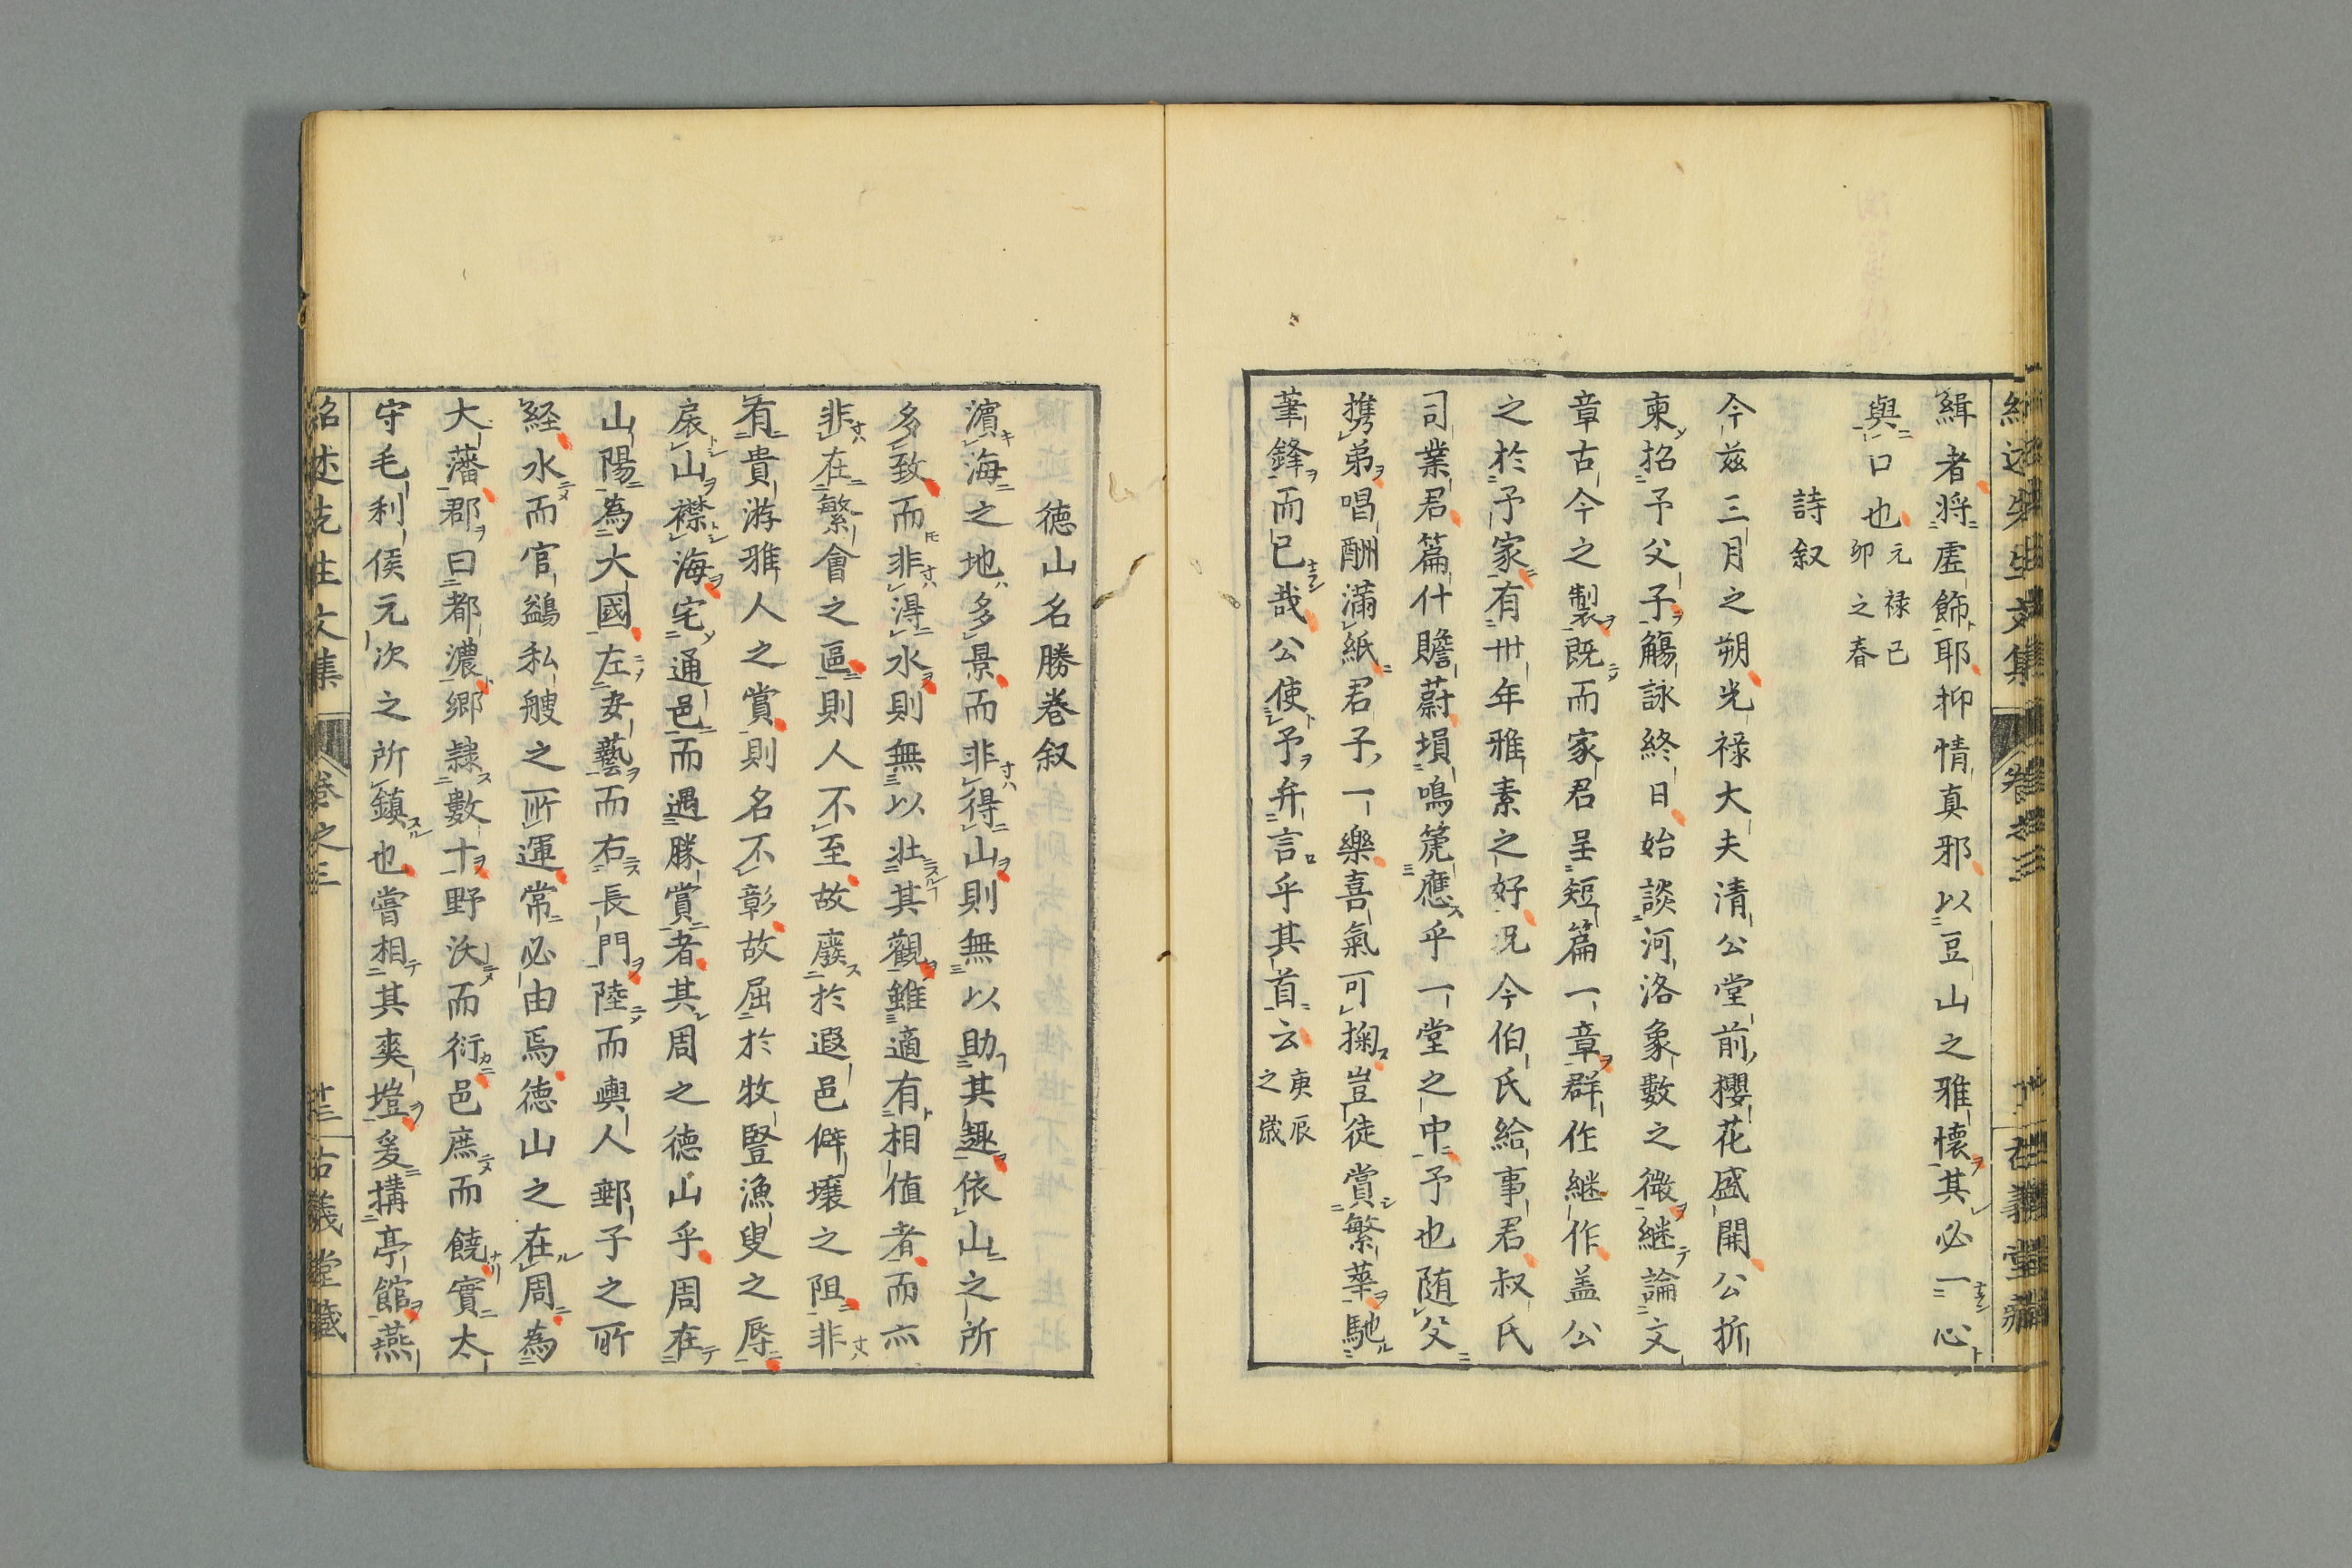 緝者将虚飾耶抑情真邪以豆山之雅懐其必一心
與口也元禄己卯之春
詩叙
今兹三月之朔光禄大夫清公堂前櫻花盛開公折
柬招予父子觴詠終日始談河洛象數之微継論文
章古今之製既而家君呈短篇一章群作継作盖公
之於予家有卅年雅素之好况今伯氏給事君叔氏
司業君篇什贍蔚塤鳴箎應乎一堂之中予也随父
携弟唱酬滿紙君子一樂喜氣可掬豈徒賞繁華馳
筆鋒而已哉公使予弁言乎其首云庚辰之歳
徳山名勝巻叙
濵海之地多景而非得山則無以助其趣依山之所
多致而非得水則無以壮其觀雖適有相值者而亦
非在繁會之區則人不至故廢於遐邑僻壌之阻非
有貴游雅人之賞則名不彰故屈於牧豎漁叟之辱
扆山襟海宅通邑而遇勝賞者其周之徳山乎周在
山陽為大國左安藝而右長門陸而輿人郵子之所
経水而官鷁私艘之所運常必由焉徳山之在周為
大藩郡曰都濃郷隷數十野沃而衍邑庶而饒實太
守毛利侯元次之所鎮也嘗相其爽塏爰搆亭館燕
紹述先生文集 巻之三 廿三 古義堂蔵